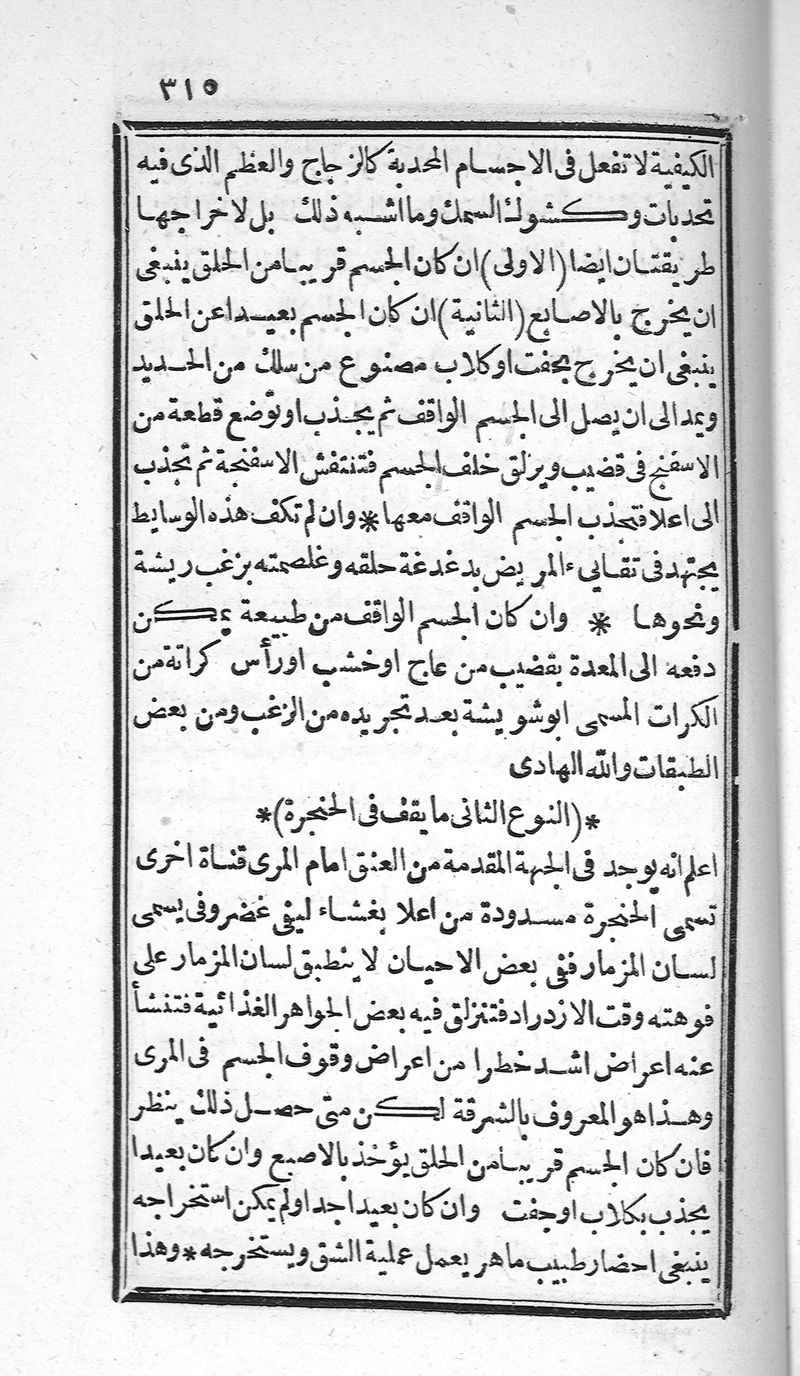 ٣١٥
الكيفية لا تفعل فى الاجسام المحدبة كالزجاج والعظم الذى فيه
تحدبات وكشوك السمك وما اشبه ذلك بل لاخراجها
طريقتان ايضا (الاولى) ان كان الجسم قريبا من الحلق ينبغى
ان يخرج بالاصابع (الثانية) ان كان الجسم بعيدا عن الحلق
ينبغى ان يخرج بجفت او كلاب مصنوع من سلك من الحديد
ويمد الى ان يصل الى الجسم الواقف ثم يجذب او توضع قطعة من
الاسفنج فى قضيب ويزلق خلف الجسم فتنتفش الاسفنجة ثم تجذب
الى اعلا فتجذب الجسم الواقف معها * وان لم تكف هذه الوسايط
يجتهد فى تقايىء المريض بدغدغة حلقه وغلصمته بزغب ريشة
ونحوها * وان كان الجسم الواقف من طبيعة يمكن
دفعه الى المعدة بقضيب من عاج او خشب او رأس كراتة من
الكرات المسمى ابو شويشة بعد تجريده من الزغب ومن بعض
الطبقات والله الهادى
*(النوع الثانى ما يقف فى الحنجرة)*
اعلم انه يوجد فى الجهة المقدمة من العنق امام المرى قناة اخرى
تسمى الحنجرة مسدودة من اعلا بغشاء ليفى غضروفى يسمى
لسان المزمار ففى بعض الاحيان لا ينطبق لسان المزمار على
فوهته وقت الازدراد فتنزلق فيه بعض الجواهر الغذائية فتنشأ
عنه اعراض اشد خطرا من اعراض وقوف الجسم فى المرى
وهذا هو المعروف بالشرقة لكن متى حصل ذلك ينظر
فان كان الجسم قريبا من الحلق يؤخذ بالاصبع وان كان بعيدا
يجذب بكلاب او جفت وان كان بعيدا جدا ولم يمكن استخراجه
ينبغى احضار طبيب ماهر يعمل عملية الشق ويستخرجه * وهذا